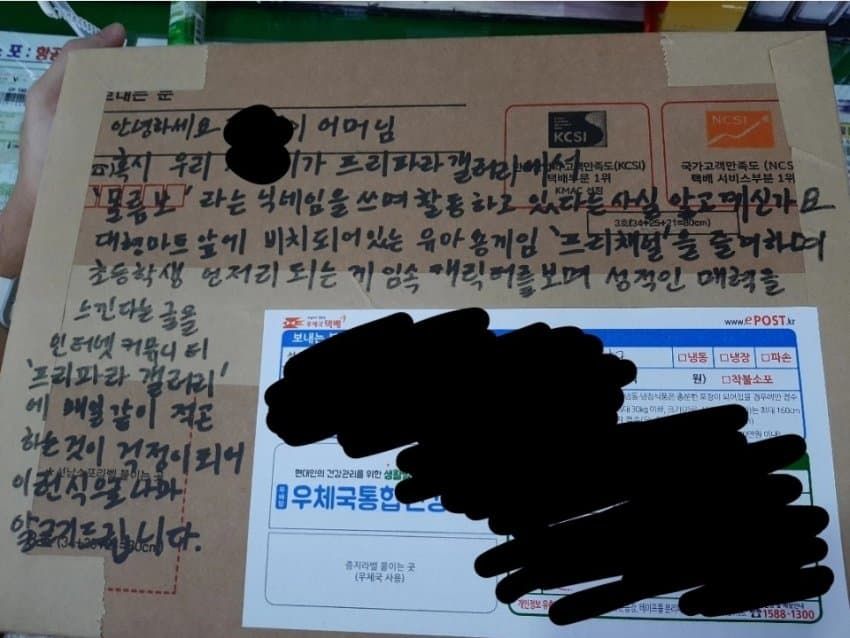 포 : 항공
보내는 분
안녕하세요 이 어머님
KCSI
NCSI
혹시 우리 이가 프리파라 갤러리에서
국가고객만족도(KCSI)
택배부문 1위
KMAC 선정
국가고객만족도 (NCS
택배 서비스부분 1위
'물름보' 라는 닉네임을 쓰며 활동하고 있다는 사실 알고계신가요
3호(34+25+21=80cm)
대형마트 앞에 비치되어있는 유아용게임 '프리채널'을 즐겨하며
초등학생 언저리 되는 게임속 캐릭터를보며 성적인 매력을
느낀다는 글을
인터넷 커뮤니티
'프리파라 갤러리'
에 매일같이 적곤
하는것이 걱정이 되어
이런식으로나마
알려드립니다.
우체국 택배
www.ePOST.kr
보내는
□냉동 □냉장 □파손
원) □착불소포
현대인의 건강관리를 위한
우체국
우체국통합건강
증지라벨 붙이는 곳
(우체국 사용)
개인정보
☎1588-1300